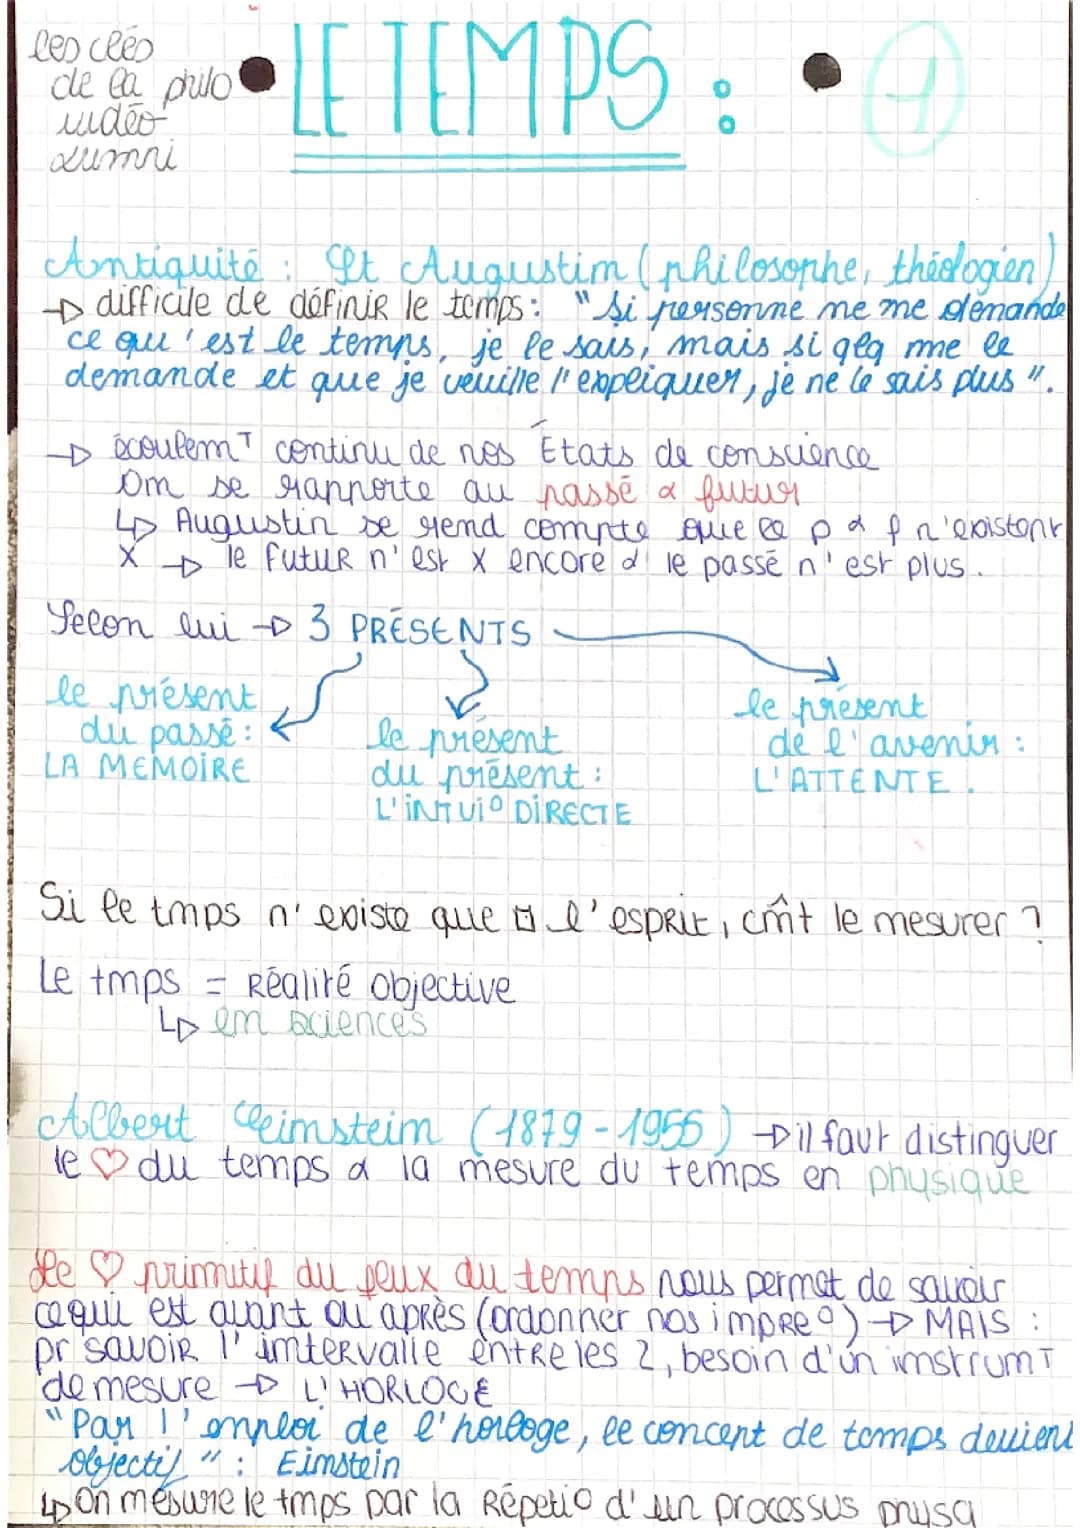 les clés
de la philo
vidéo
Lumni
LE TEMPS :
1
Antiquité : St Augustin (philosophe, théologien)
→ difficile de définir le temps : "Si personne ne me demande
ce qu'est le temps, je le sais, mais si qlq me le
demande et que je veuille l'expliquer, je ne le sais plus".
→ écoulemT continu de nos États de conscience
On se rapporte au passé & futur
↳ Augustin se rend compte que le p & f n'existent
X → le futur n'est X encore & le passé n'est plus.
Selon lui → 3 PRÉSENTS
le présent
du passé :
LA MÉMOIRE
le présent
du présent :
L'INTUI° DIRECTE
le présent
de l'avenir :
L'ATTENTE.
Si le tmps n'existe que l'esprit, cmt le mesurer ?
Le tmps = Réalité objective
↳ en sciences
Albert Einstein (1879-1955) → il faut distinguer
le ♡ du temps & la mesure du temps en physique
Le ♡ primitif du feux du temps nous permet de savoir
ce qui est avant ou après (ordonner nos impre°) → MAIS :
pr savoir l'intervalle entre les 2, besoin d'un instrumT
de mesure → L'HORLOGE
"Par l'emploi de l'horloge, le concept de temps devient
objectif" : Einstein
↳ On mesure le tmps par la Répéti° d'un processus physq